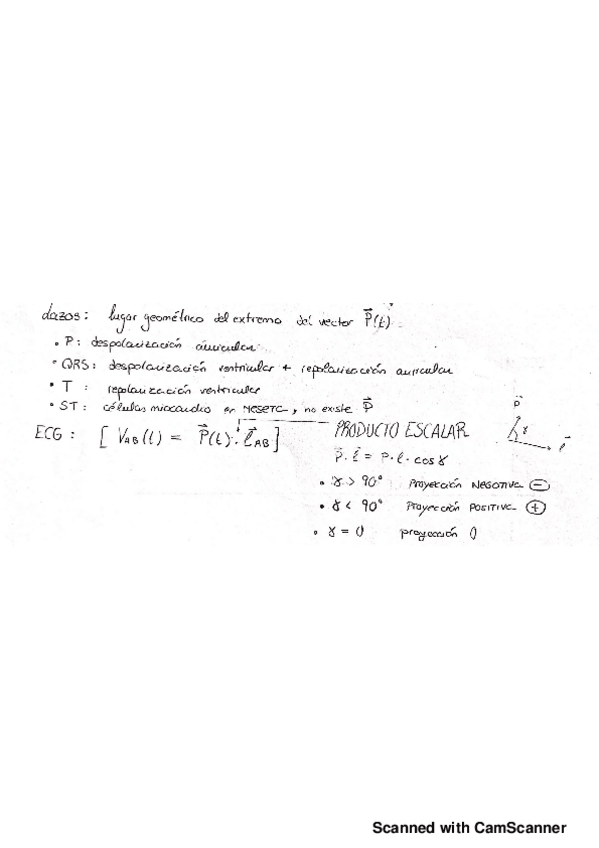 dazos: lugar geométrico del extremo del vector P⃗(t)
• P: despolarización auricular
• QRS: despolarización ventricular + repolarización auricular
• T : repolarización ventricular
• ST: células miocardio en meseta, no existe P⃗
ECG: [ V_AB(t) = P⃗(t) · l⃗_AB ] PRODUCTO ESCALAR
P⃗ · l⃗ = P · l · cos γ
• γ > 90° Proyección NEGATIVA ⊖
• γ < 90° Proyección POSITIVA ⊕
• γ = 0 proyección 0
P⃗
γ
l⃗
Scanned with CamScanner